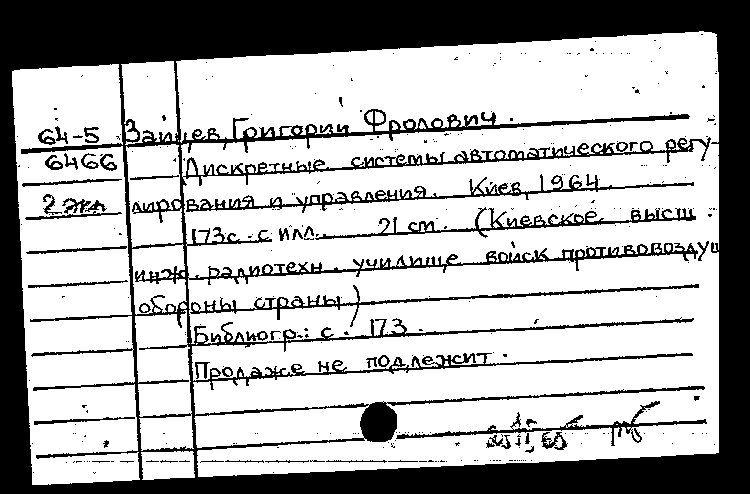 64-5 Зайцев, Григорий Фролович.
6466 Дискретные системы автоматического регу-
2 экз лирования и управления. Киев, 1964.
173с. с илл. 21 см. (Киевское высш.
инж. радиотехн. училище войск противовоздуш
обороны страны)
Библиогр.: с. 173.
Продаже не подлежит.